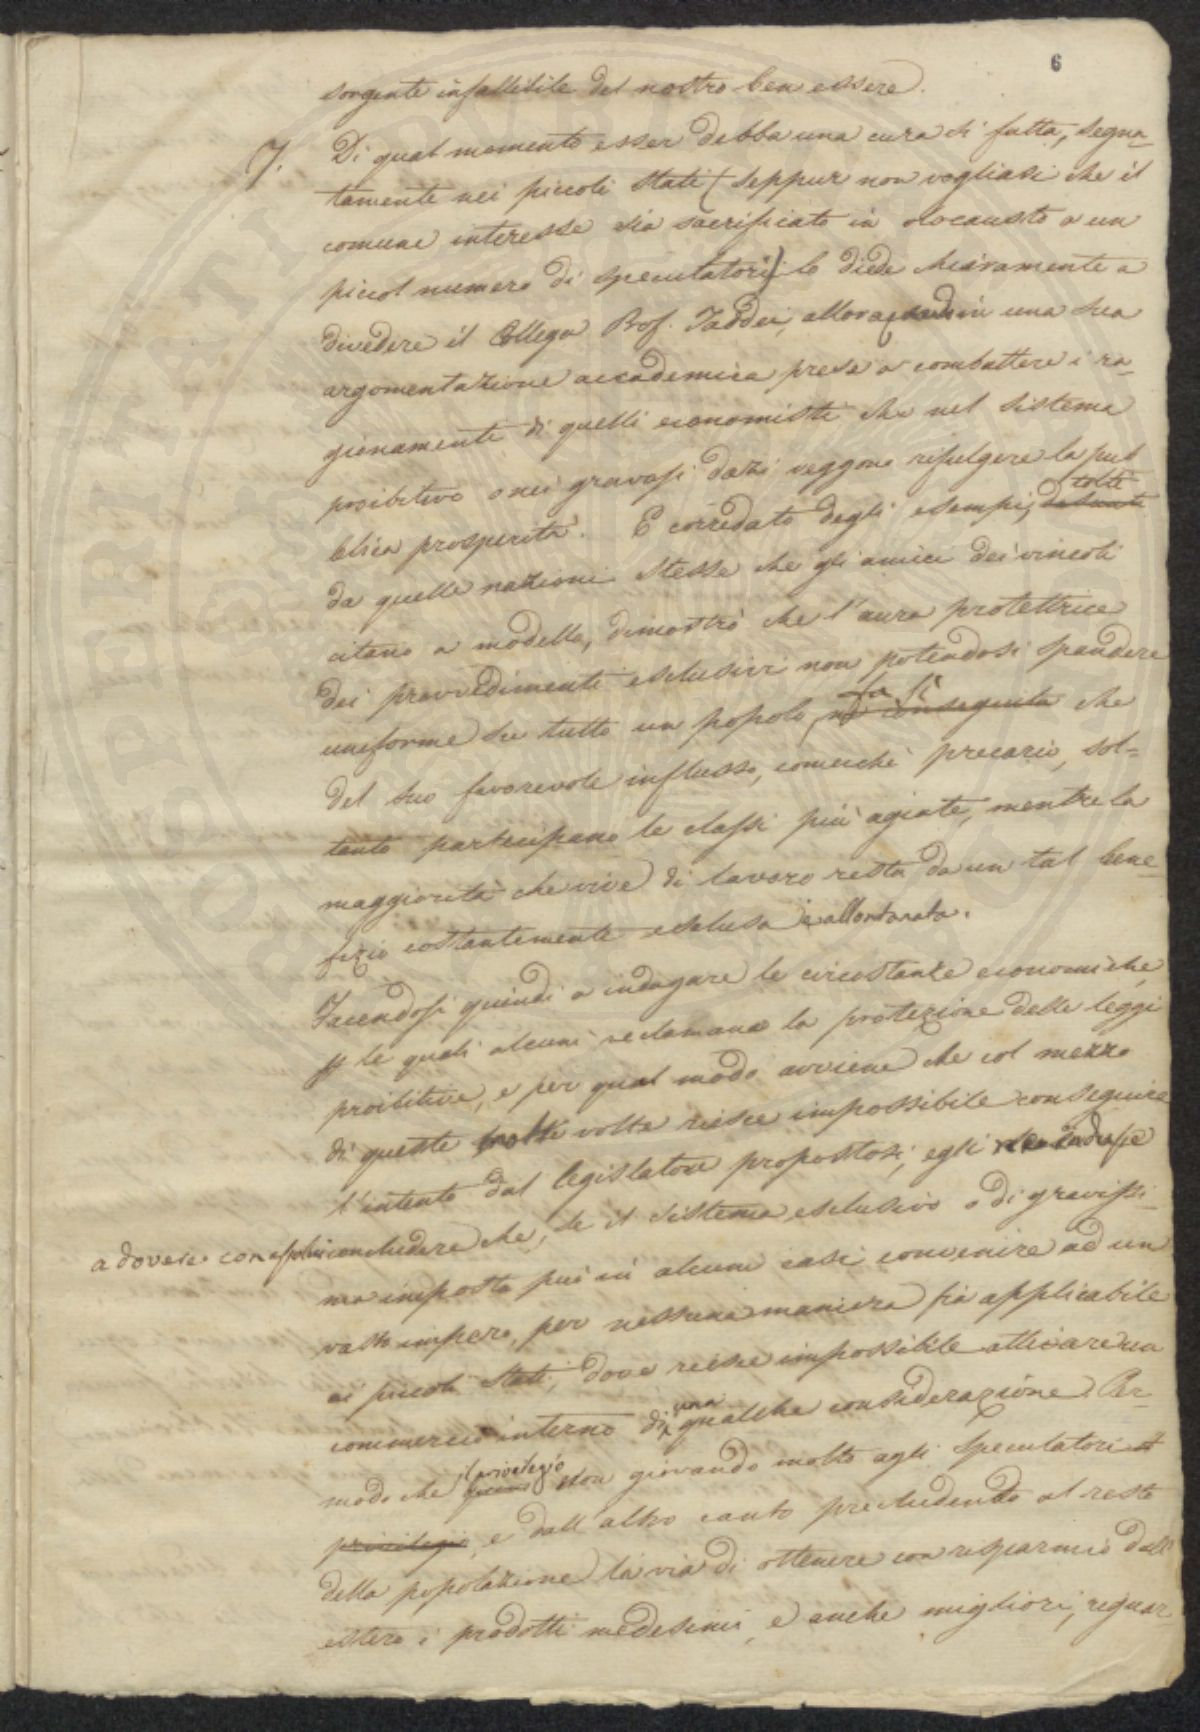 6
sorgente infallibile del nostro ben essere.
7. Di qual momento esser debba una cura sì fatta, segna-
tamente nei piccoli Stati (seppur non vogliasi che il
comune interesse sia sacrificato in olocausto a un
piccol numero di speculatori) lo diede chiaramente a
divedere il Collega Prof. Taddei, allora in una sua
argomentazione accademica prese a combattere i ra-
gionamenti di quelli economisti che nel sistema
proibitivo o nei gravosi dazi veggono rifulgere la pub
blica prosperità. E corredato degli esempi, tolti
da quelle nazioni stesse che gli amici dei vincoli
citano a modello, dimostrò che l'aura protettrice
dei provvedimenti esclusivi non potendosi spandere
uniforme su tutto un popolo, fa sì che
del suo favorevole influsso, comechè precario, sol-
tanto partecipano le classi più agiate, mentre la
maggiorità che vive di lavoro resta da un tal bene-
fizio costantemente esclusa e allontanata.
Facendosi quindi a indagare le circostanze economiche,
p le quali alcuni reclamano la protezione delle leggi
proibitive, e per qual modo avviene che col mezzo
di queste molte volte riesce impossibile conseguire
l'intento dal legislatore propostosi, egli
a dovere concludere che, se il sistema esclusivo o di gravissi-
ma imposta può in alcuni casi convenire ad un
vasto impero, per nessuna maniera fia applicabile
ai piccoli Stati, dove riesce impossibile attivare un
commercio interno di una qualche considerazione. Per-
modo che il privilegio non giovando molto agli speculatori
privilegio, e dall'altro canto precludendo al resto
della popolazione la via di ottenere con risparmio dall'
estero i prodotti medesimi, e anche migliori, reguar-